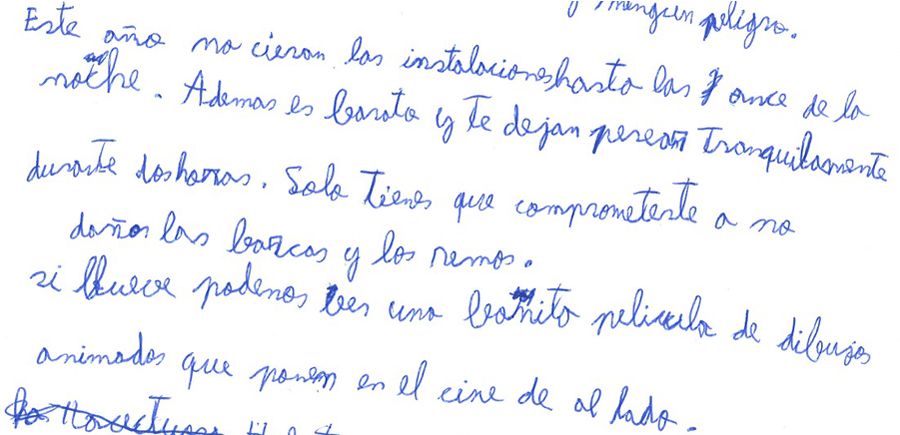 peligro.
Este año no cieran las instalaciones hasta las once de la
noche. Ademas es barato y te dejan pasear Tranquilamente
durante dos horas. Solo Tienes que comprometerte a no
dañar las barcas y los remos.
si llueve podemos ver una bonita pelicula de dibujos
animados que ponen en el cine de al lado.